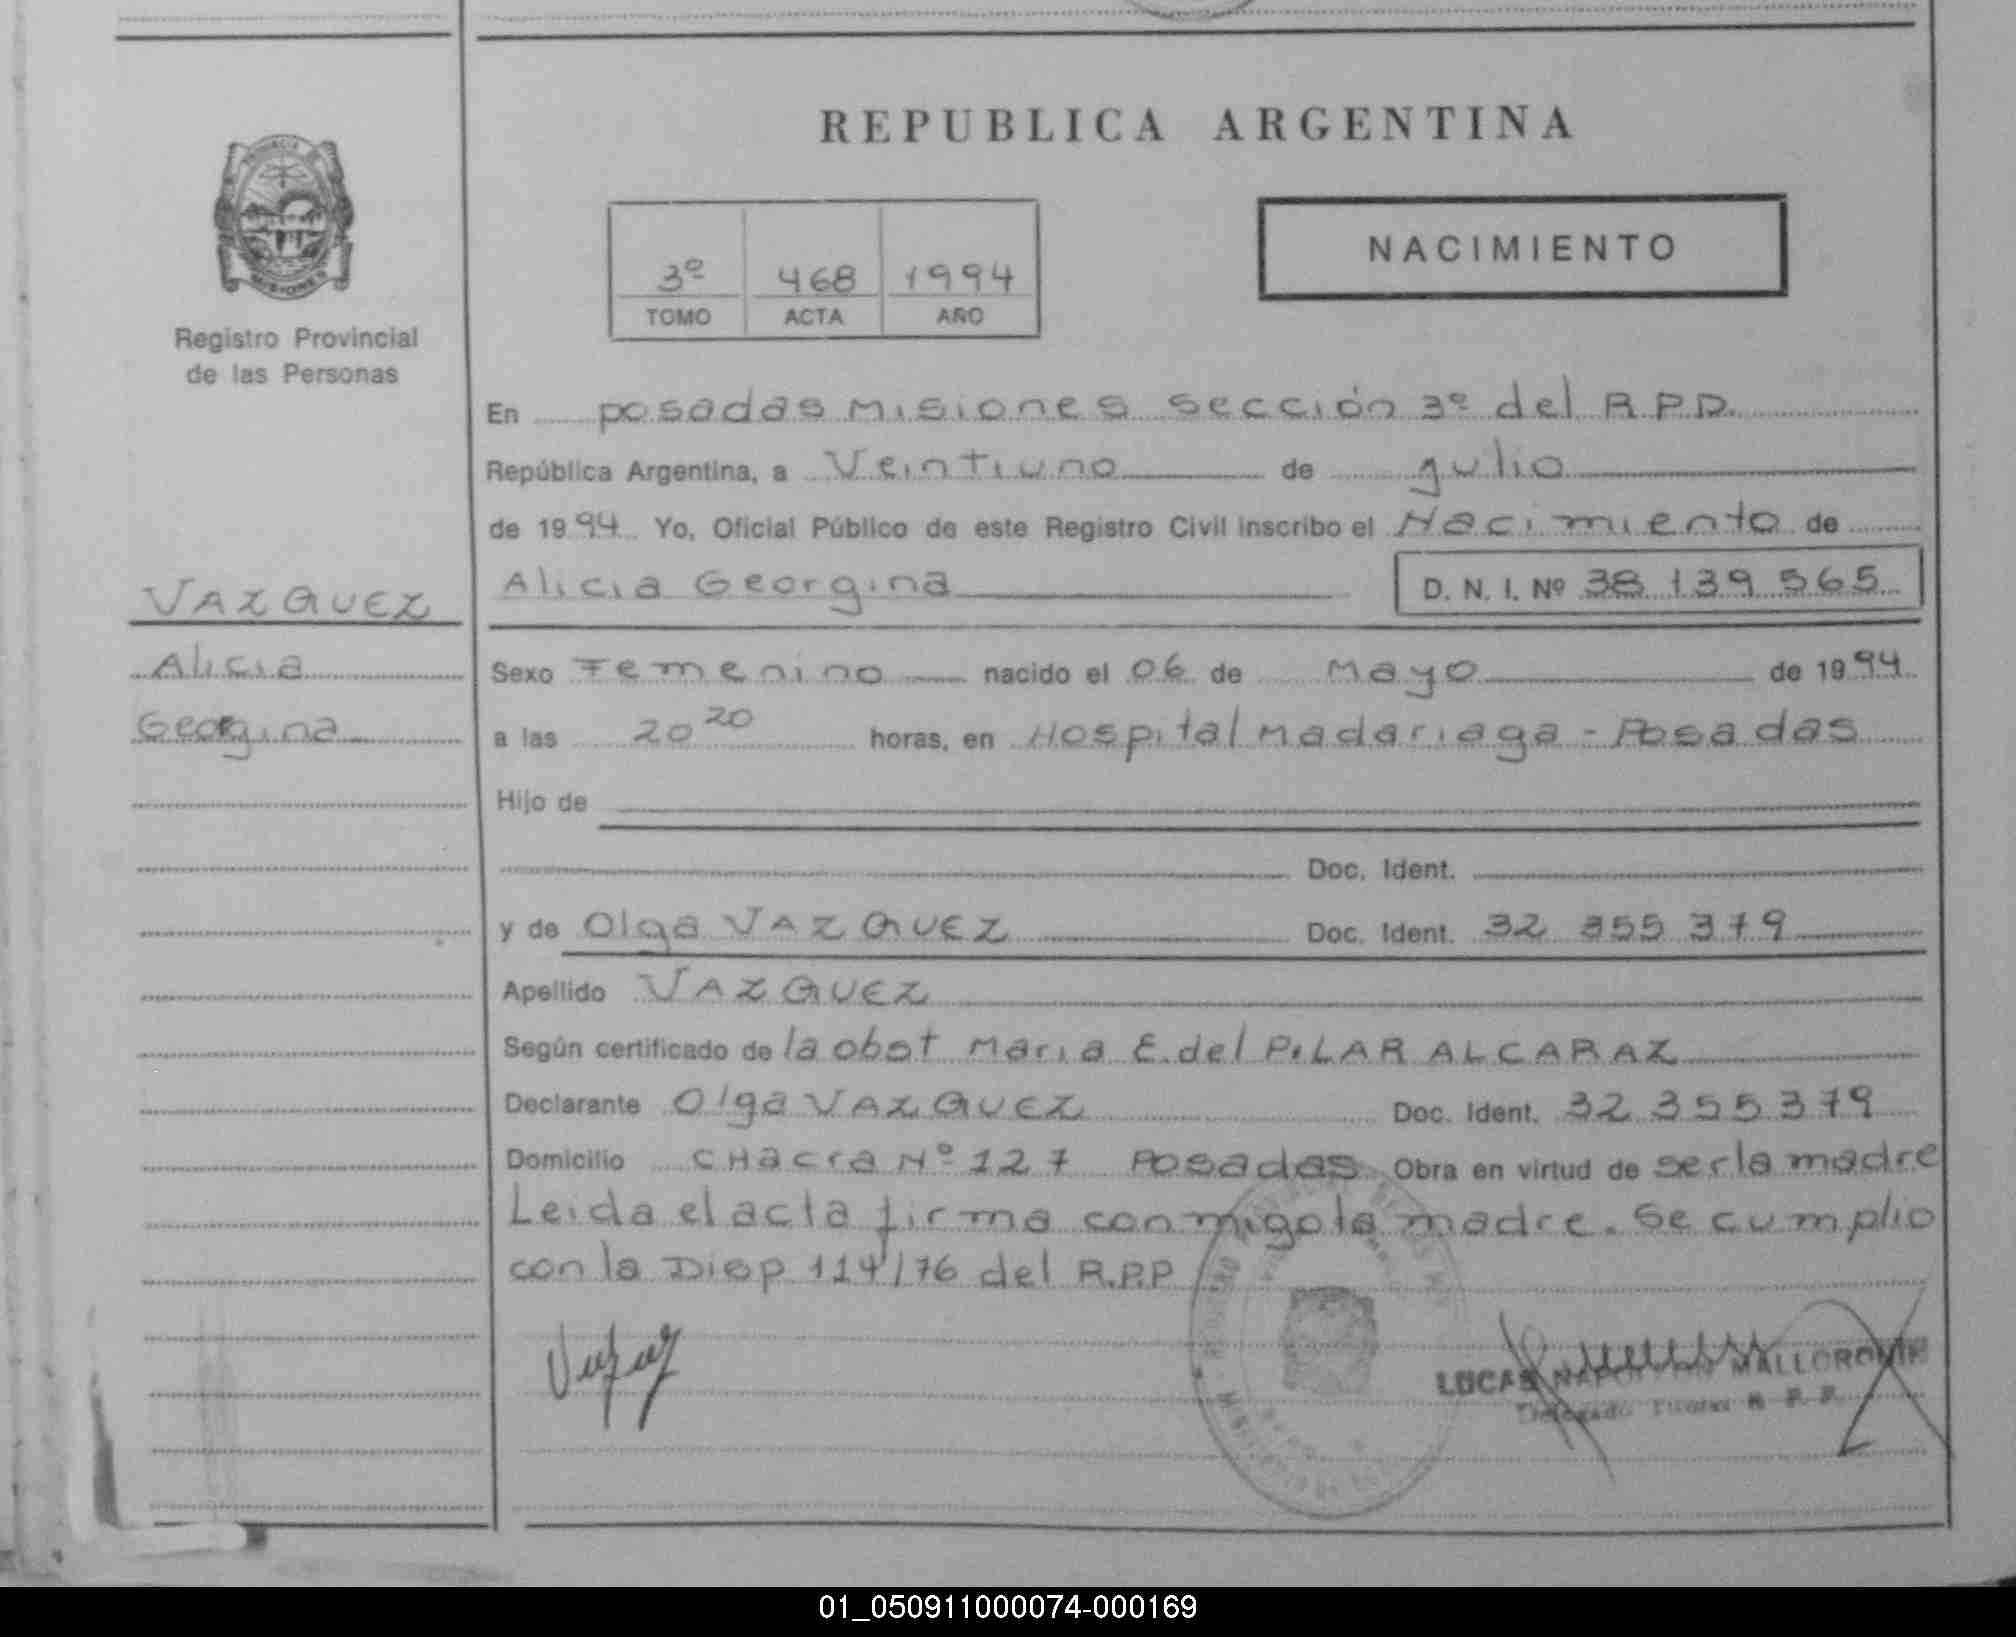 REPUBLICA ARGENTINA
NACIMIENTO
3º 468 1994
TOMO ACTA AÑO
PROVINCIA DE
MISIONES
Registro Provincial
de las Personas
VAZQUEZ
Alicia
Georgina
En posadas Misiones sección 3º del R.P.P.
República Argentina, a Veintiuno de julio
de 1994 Yo, Oficial Público de este Registro Civil inscribo el Nacimiento de
Alicia Georgina D. N. I. Nº 38 139 565
Sexo Femenino nacido el 06 de Mayo de 1994
a las 20 20 horas, en Hospital Madariaga - Posadas
Hijo de
Doc. Ident.
y de Olga VAZQUEZ Doc. Ident. 32 355 379
Apellido VAZQUEZ
Según certificado de la obst Maria E. del PILAR ALCARAZ
Declarante Olga VAZQUEZ Doc. Ident. 32 355 379
Domicilio CHacra Nº 127 Posadas Obra en virtud de ser la madre
Leida el acta firma conmigo la madre. Se cumplio
con la Disp 114/76 del R.P.P
LUCAS NAPOLEON
Delegado Titular R. P. P.
01_050911000074-000169